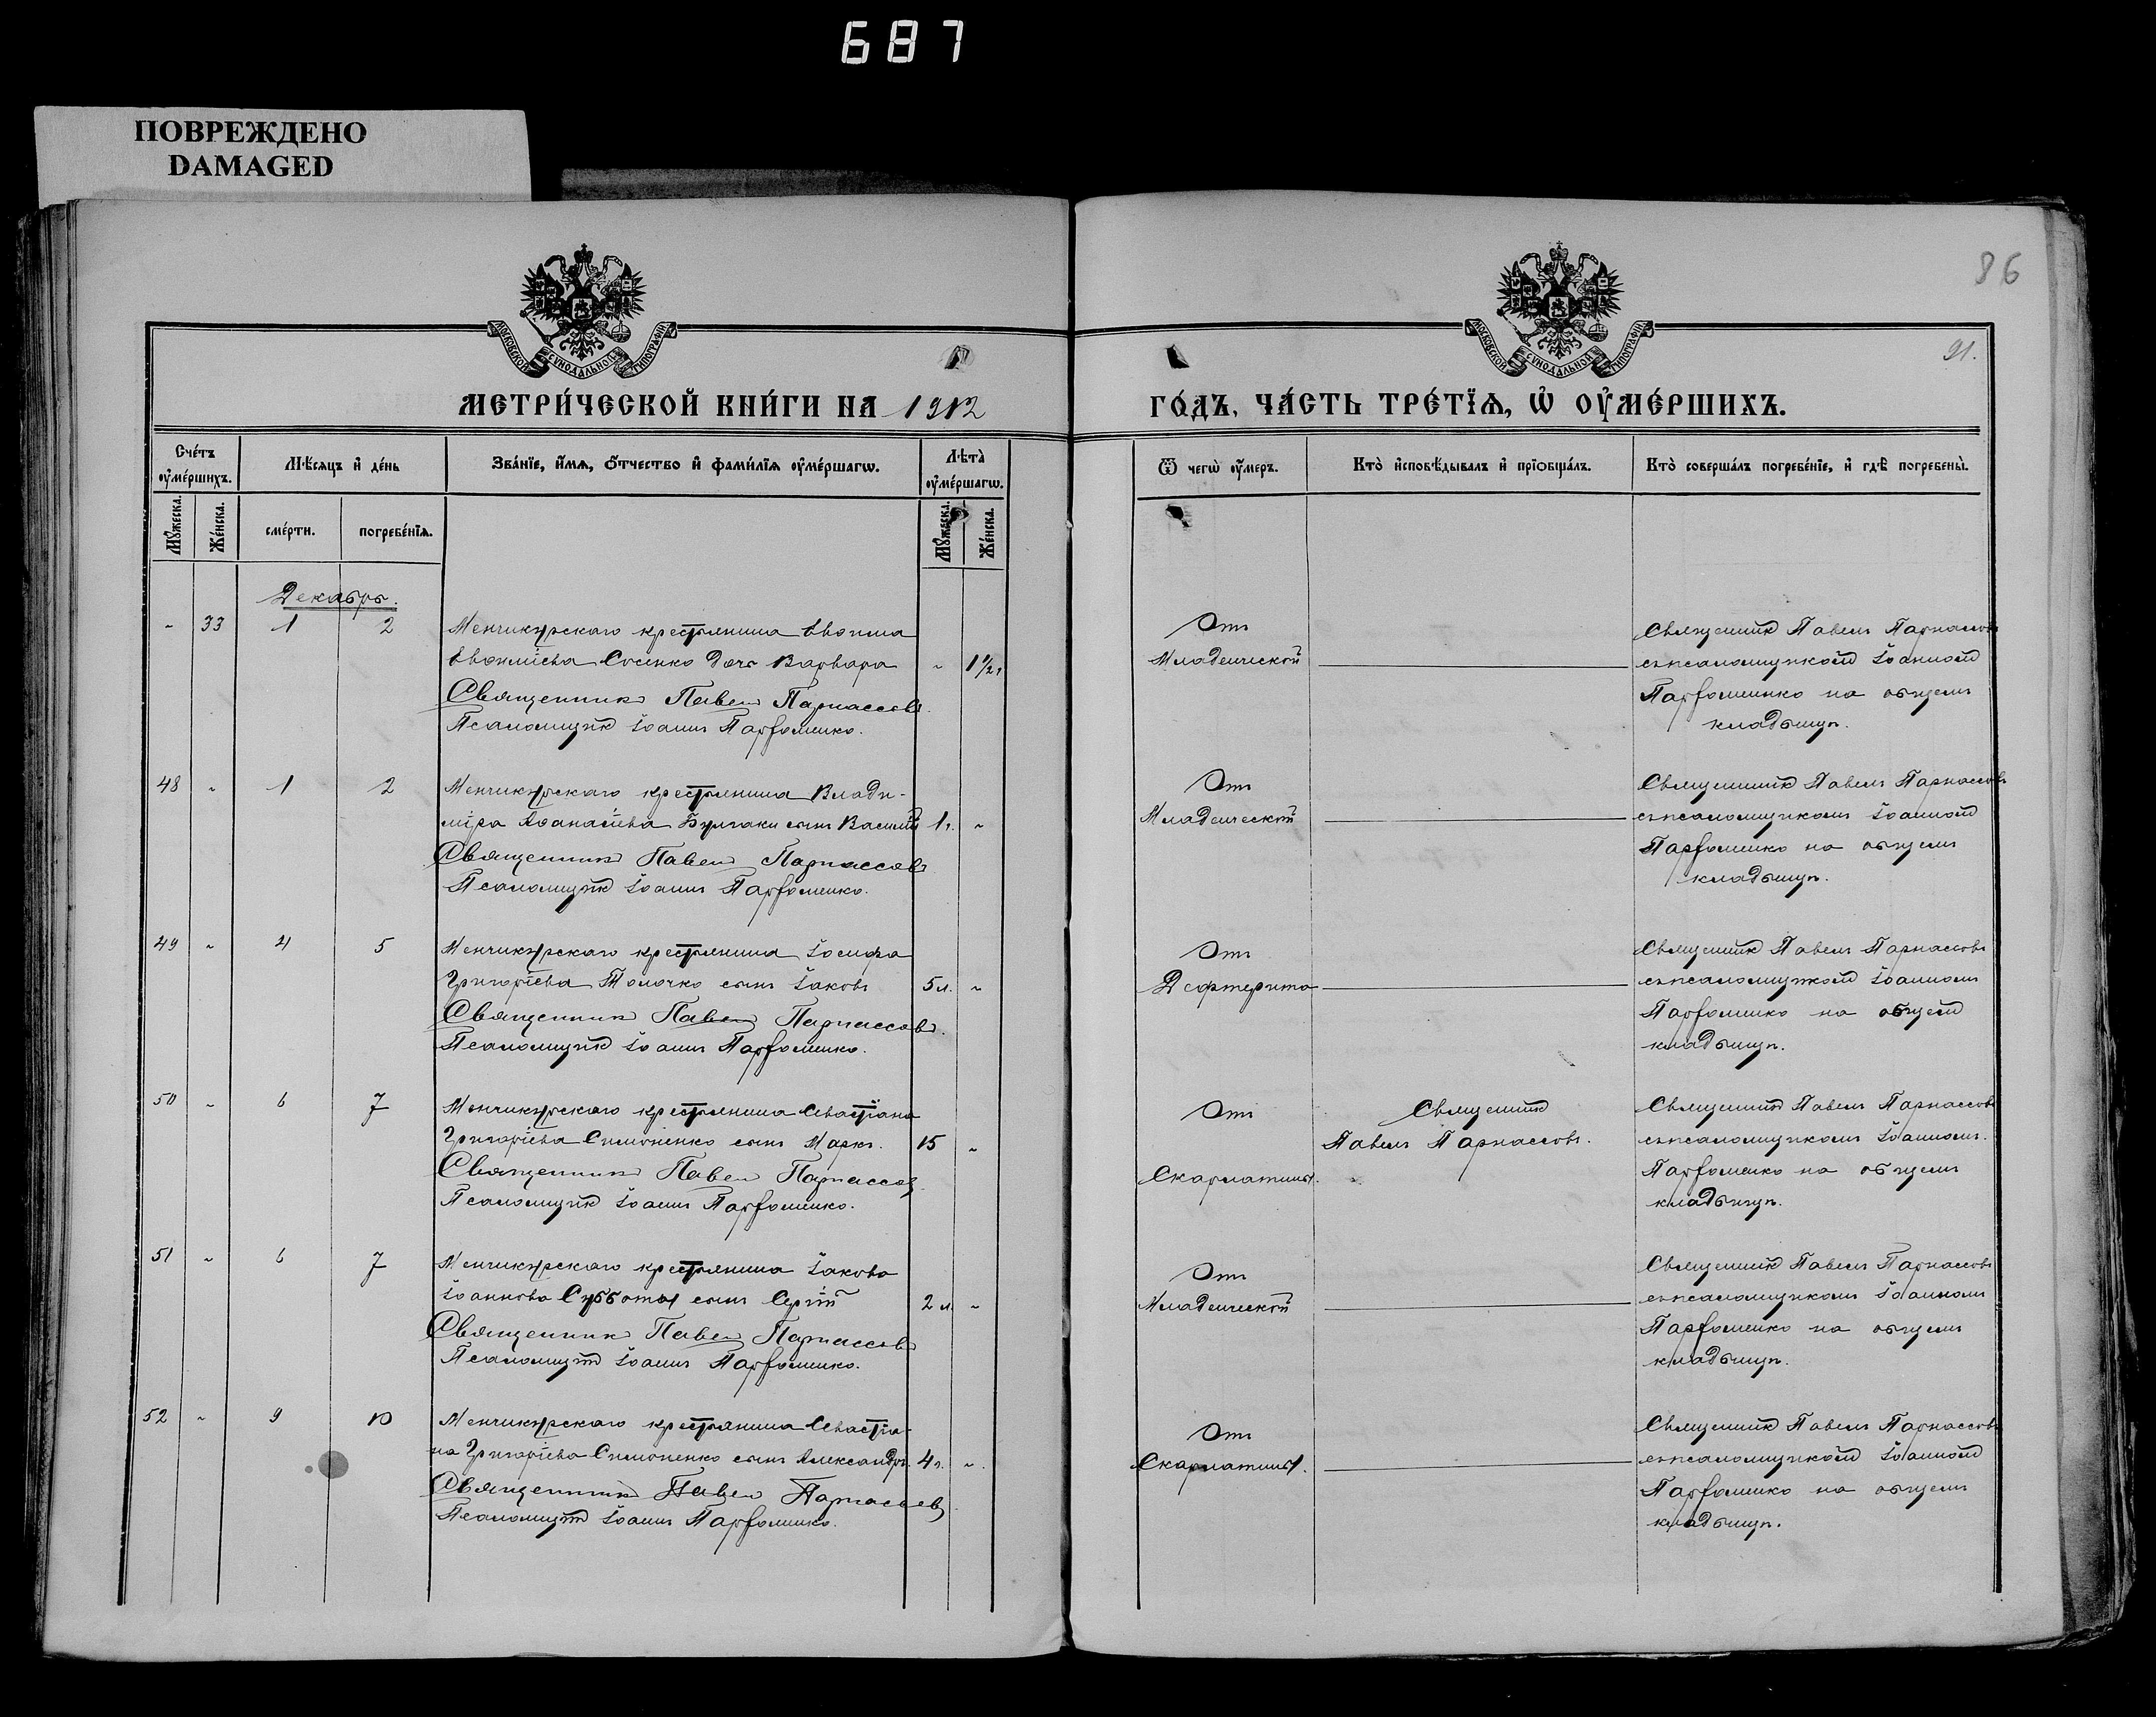 687
ПОВРЕЖДЕНО
DAMAGED
86
91.
МОСКОВСКОЙ СѴНОДАЛЬНОЙ ТИПОГРАФІИ
МОСКОВСКОЙ СѴНОДАЛЬНОЙ ТИПОГРАФІИ
МЕТРИ́ЧЕСКОЙ КНИ́ГИ НА 1912
ГО́ДЪ, ЧА́СТЬ ТРЕ́ТЇѦ, Ѡ҆ ОУ҆МЕ́РШИХЪ.
Сче́тъ оу҆ме́ршихъ.
Мѣ́сѧцъ и҆ де́нь
Зва́нїе, и҆́мѧ, ѻ҆́тчество и҆ фами́лїѧ оу҆ме́ршагѡ.
Лѣта̀ оу҆ме́ршагѡ.
Ѿ чегѡ̀ оу҆́меръ.
Кто̀ и҆сповѣ́дывалъ и҆ прїѡбща́лъ.
Кто̀ соверша́лъ погребе́нїе, и҆ гдѣ̀ погребены̀.
Мꙋ́жеска.
Же́нска.
сме́рти.
погребе́нїѧ.
Мꙋ́жеска.
Же́нска.
Декабрь.
" 33 1 2 Менчикурскаго крестьянина Евѳима
Евѳиміева Сосенко дочь Варвара " 1 1/2 г
Священник Павел Парнассовъ
Псаломщик Іоаннъ Парфоменко.
Отъ
Младенческой
Священник Павелъ Парнассовъ
съ псаломщиком Іоанном
Парфоменко на общемъ
кладбищѣ.
48 " 1 2 Менчикурскаго крестьянина Влади-
міра Аѳанасіева Булгаки сынъ Василій 1 г. "
Священник Павел Парнассовъ
Псаломщик Іоаннъ Парфоменко.
Отъ
Младенческой
Священник Павелъ Парнассовъ
съ псаломщикомъ Іоанном
Парфоменко на общемъ
кладбищѣ.
49 " 4 5 Менчикурскаго крестьянина Іосифа
Григоріева Толочко сынъ Іаковъ 5 л. "
Священник Павел Парнассовъ.
Псаломщик Іоаннъ Парфоменко.
Отъ
Дефтерита
Священник Павелъ Парнассовъ
съ псаломщиком Іоанномъ
Парфоменко на общем
кладбищѣ.
50 " 6 7 Менчикурскаго крестьянина Севастіана
Григоріева Симоненко сынъ Маркъ. 15 "
Священник Павел Парнассов
Псаломщик Іоаннъ Парфоменко.
Отъ
Скарлатины.
Священник
Павелъ Парнассовъ.
Священник Павелъ Парнассовъ
съ псаломщикомъ Іоанномъ.
Парфоменко на общемъ
кладбищѣ.
51 " 6 7 Менчикурскаго крестьянина Іакова
Іоаннова Субботы сынъ Сергій 2 л. "
Священник Павел Парнассовъ
Псаломщик Іоаннъ Парфоменко.
Отъ
Младенческой
Священник Павелъ Парнассовъ
съ псаломщикомъ Іоанномъ
Парфоменко на общемъ
кладбищѣ.
52 " 9 10 Менчикурскаго крестьянина Севастіа-
на Григоріева Симоненко сынъ Александръ. 4 г. "
Священник Павел Парнассов
Псаломщик Іоаннъ Парфоменко.
Отъ
Скарлатины.
Священник Павелъ Парнассовъ
съ псаломщиком Іоанном
Парфоменко на общемъ
кладбищѣ.